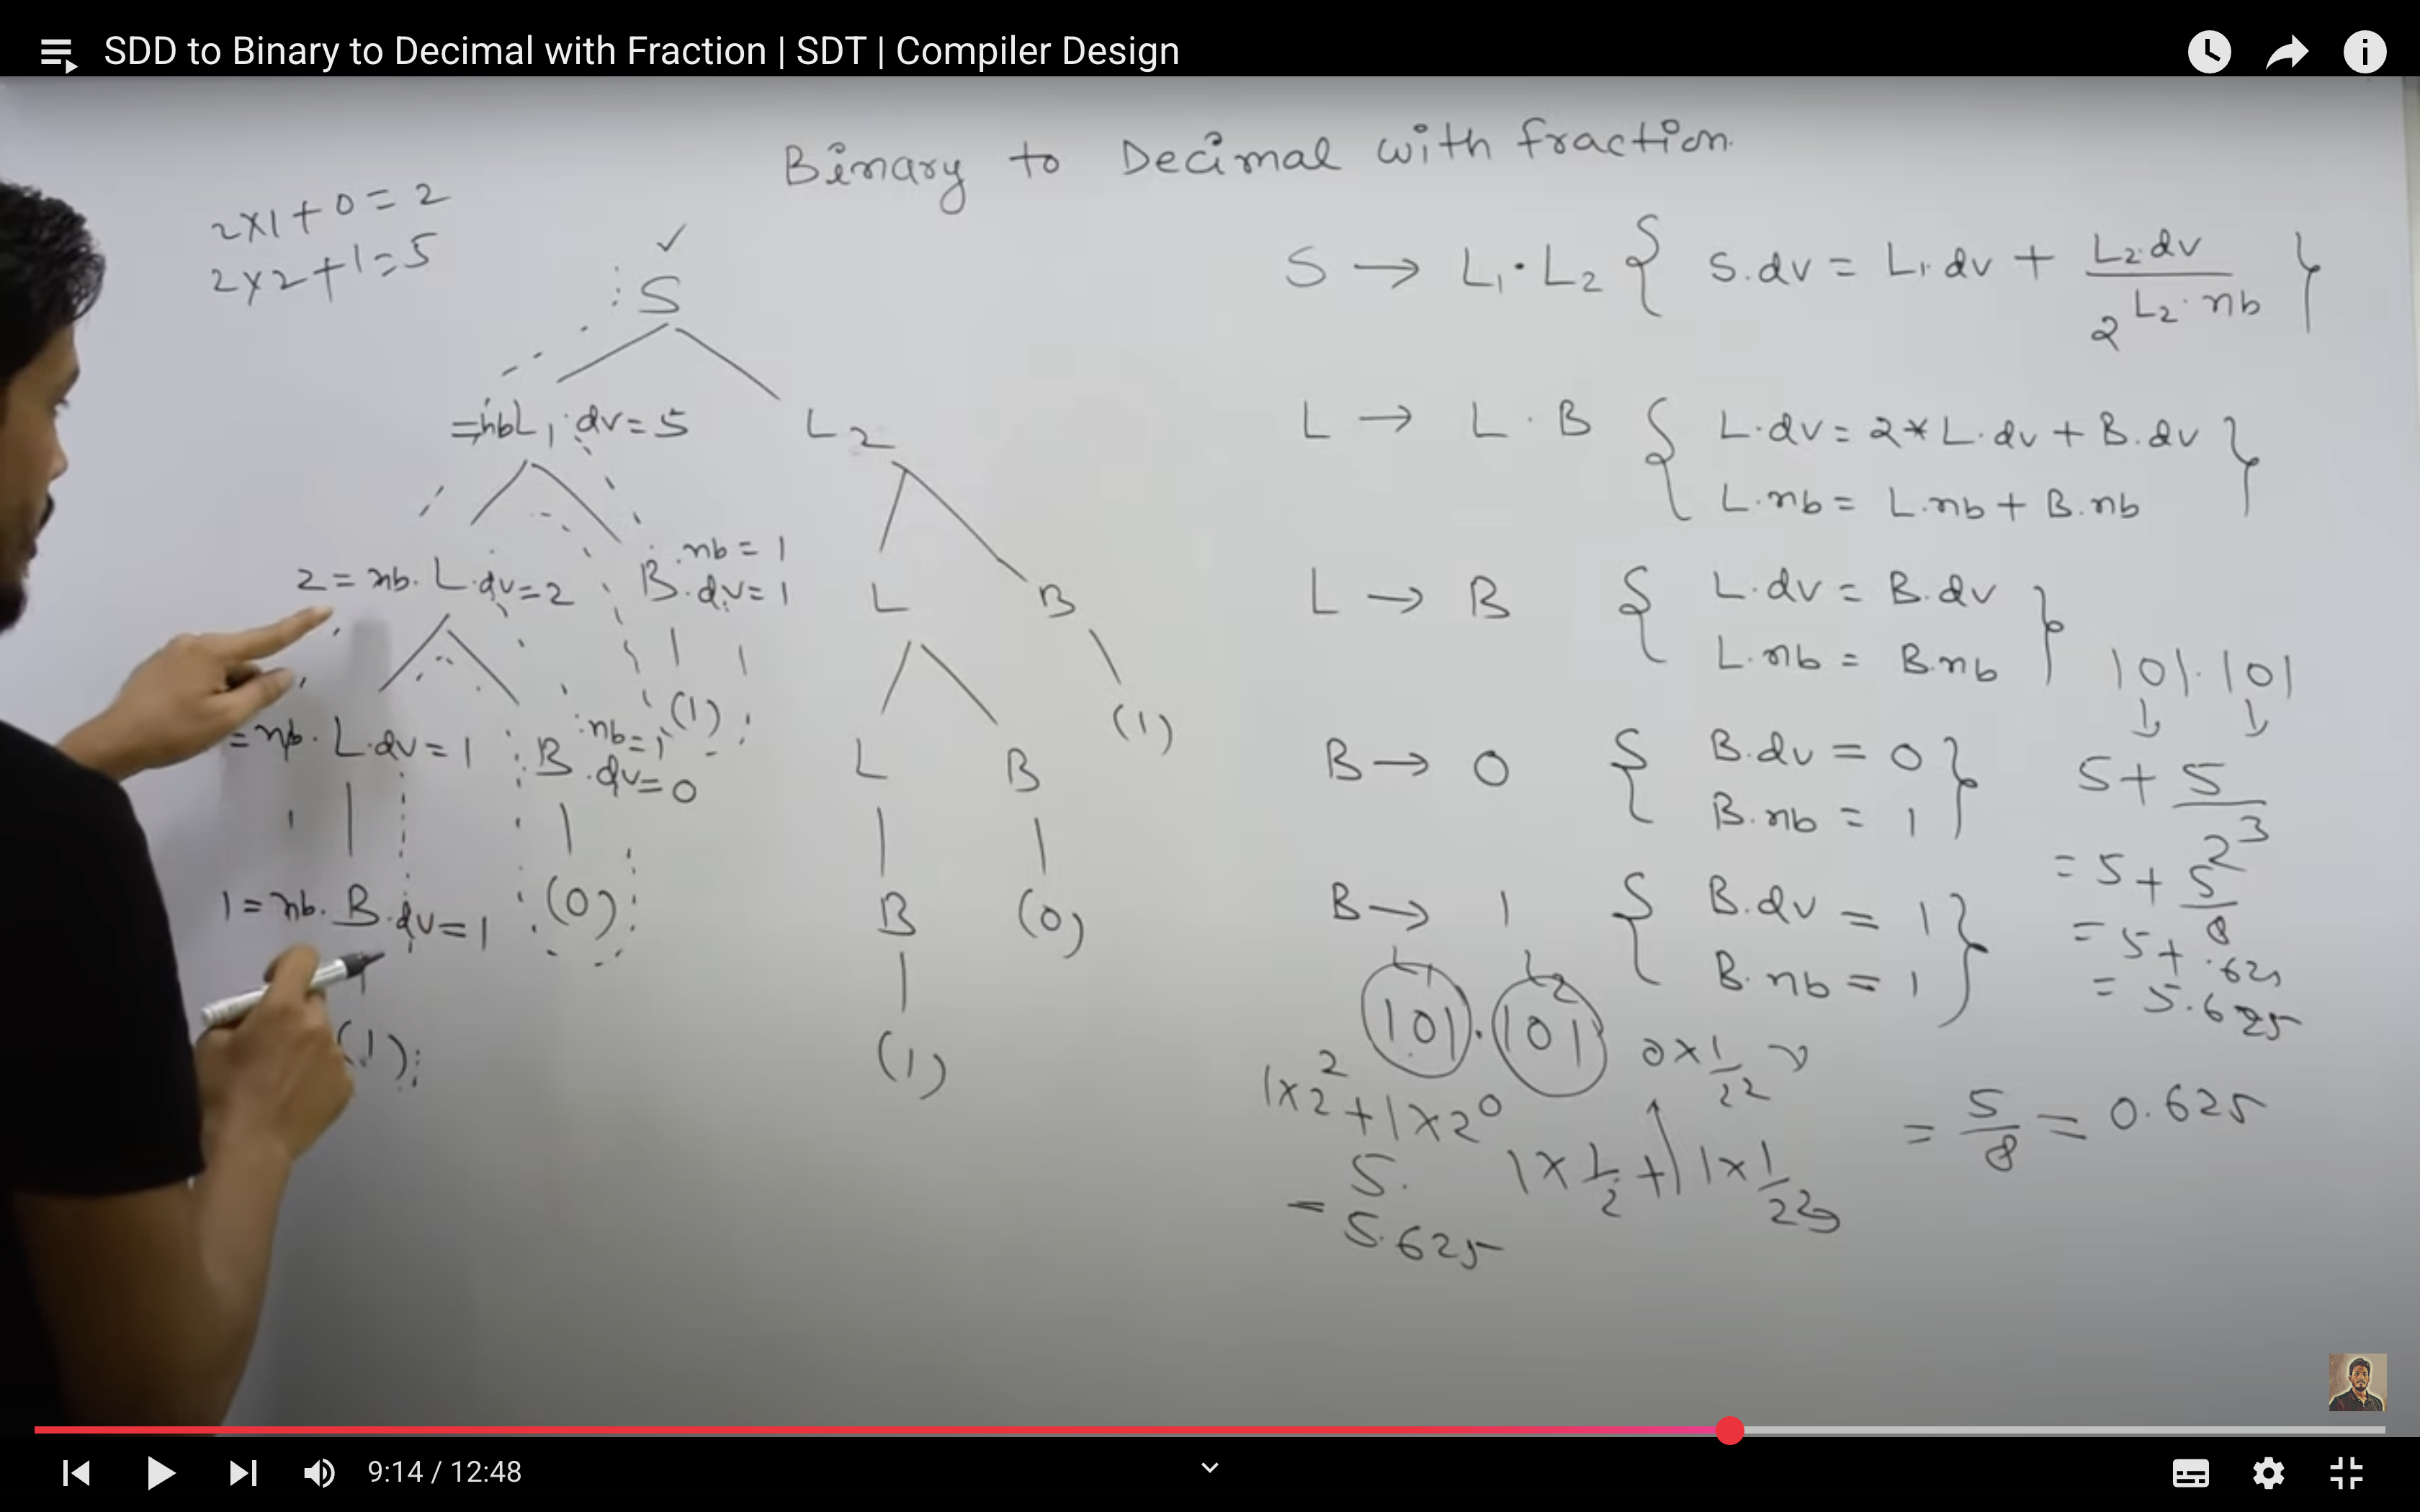 SDD to Binary to Decimal with Fraction | SDT | Compiler Design
Binary to Decimal with fraction.
2x1+0=2
2x2+1=5
✓
S
=nb L1.dv=5
L2
2=nb.L.dv=2
B.nb=1
.dv=1
L
B
=nb.L.dv=1
B.nb=1
.dv=0
(1)
L
B
(1)
1=nb.B.dv=1
(0)
B
(0)
(1)
(1)
S → L1.L2 { S.dv = L1.dv + L2.dv / 2^L2.nb }
L → L.B { L.dv = 2*L.dv + B.dv
L.nb = L.nb + B.nb }
L → B { L.dv = B.dv
L.nb = B.nb }
B → 0 { B.dv = 0
B.nb = 1 }
B → 1 { B.dv = 1
B.nb = 1 }
101.101
↓ ↓
5+5/2^3
=5+5/8
=5+.625
=5.625
L1 L2
101.101
0x1/2^2
1x2^2+1x2^0
5.
1x1/2+1x1/2^3
=5/8=0.625
=5.625
9:14 / 12:48